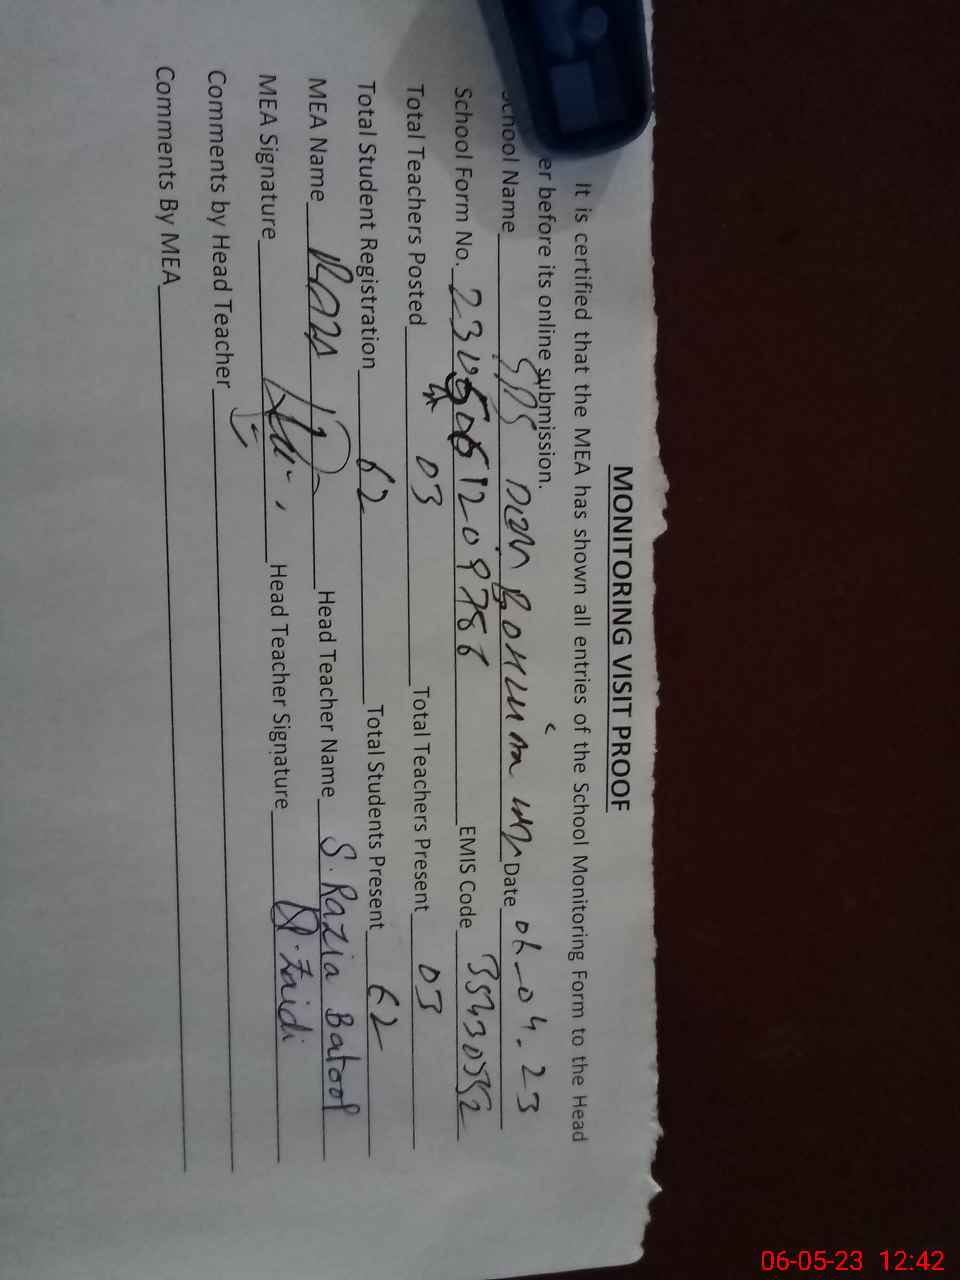 MONITORING VISIT PROOF
It is certified that the MEA has shown all entries of the School Monitoring Form to the Head
er before its online submission.
School Name Date 04.23
School Form No. EMIS Code
Total Teachers Posted 03 Total Teachers Present 03
Total Student Registration 62 Total Students Present 62
MEA Name Head Teacher Name S. Razia Batool
MEA Signature Head Teacher Signature Zaidi
Comments by Head Teacher
Comments By MEA
06-05-23 12:42